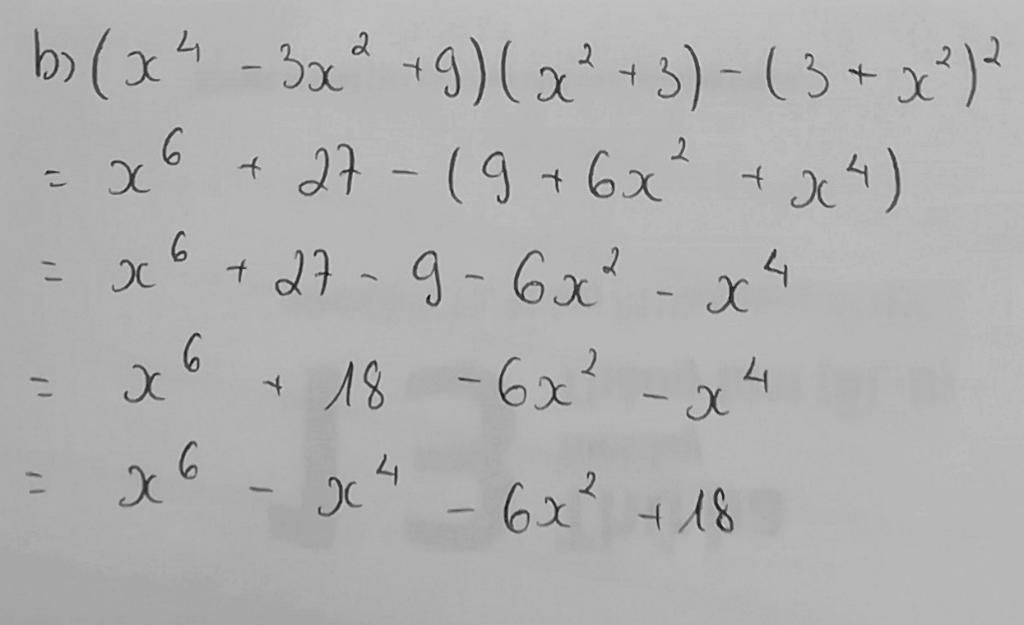 b) (x⁴ - 3x² + 9)(x² + 3) - (3 + x²)²
= x⁶ + 27 - (9 + 6x² + x⁴)
= x⁶ + 27 - 9 - 6x² - x⁴
= x⁶ + 18 - 6x² - x⁴
= x⁶ - x⁴ - 6x² + 18